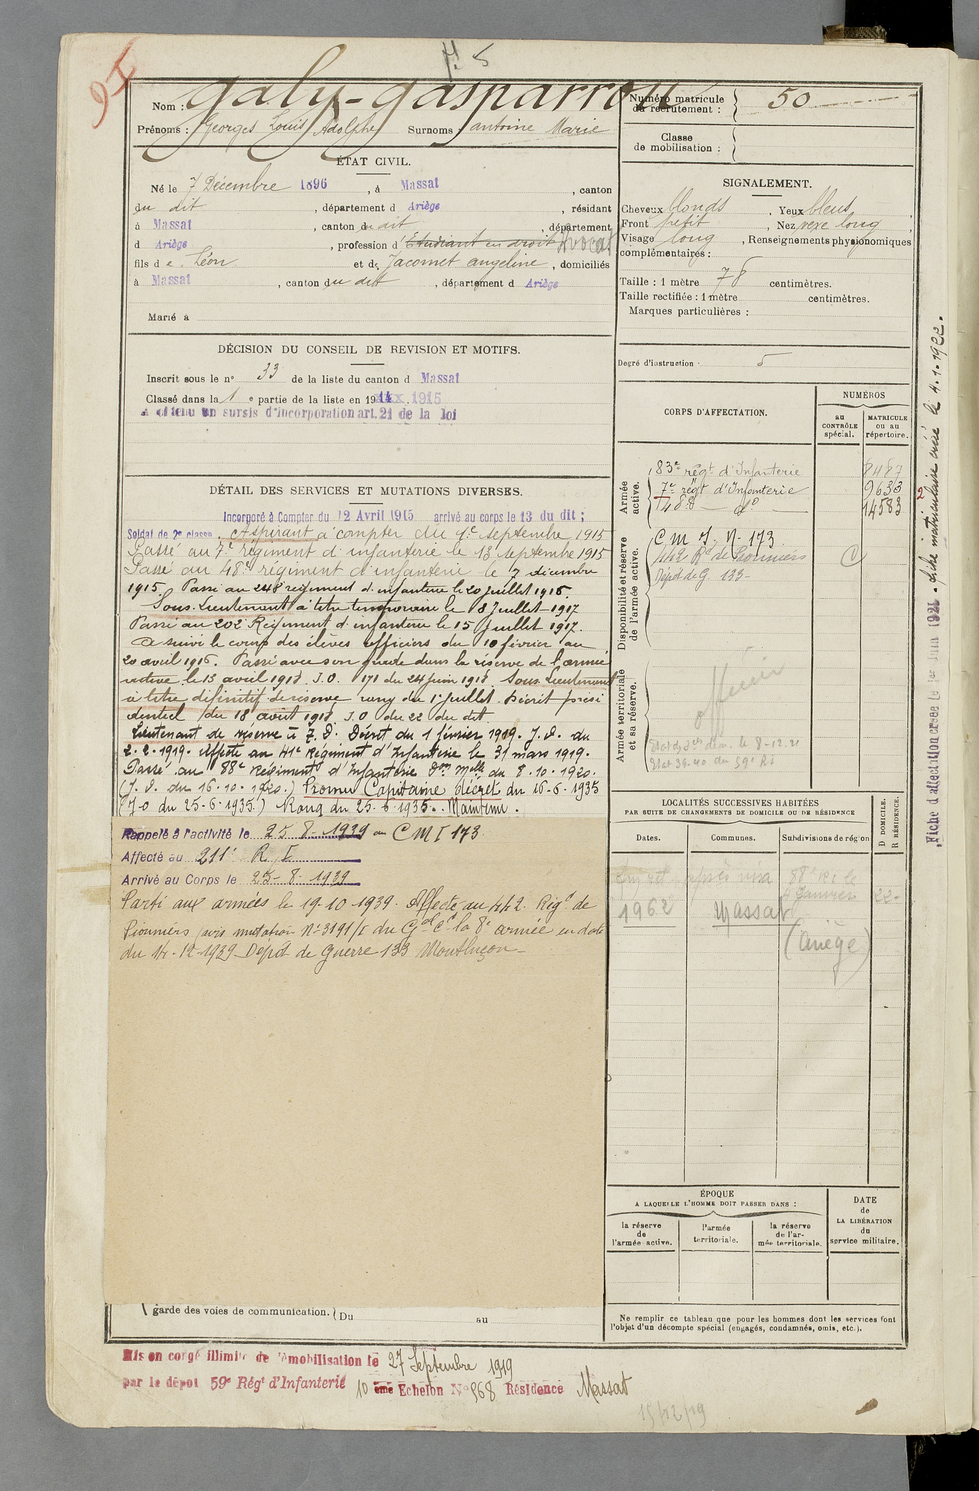 Nom : Galy-Gasparrou
Prénoms : Georges Louis Adolphe Surnoms : Antoine Marie
Numéro matricule du recrutement : 50
Classe de mobilisation :
ÉTAT CIVIL.
Né le 7 Décembre 1896, à Massat, canton
du dit, département d Ariège, résidant
à Massat, canton du dit, département
d Ariège, profession d'Etudiant en droit Avocat
fils de Léon et de Jacomet Angeline, domiciliés
à Massat, canton du dit, département d Ariège
Marié à
SIGNALEMENT.
Cheveux blonds. Yeux bleus,
Front petit, Nez long
Visage long, Renseignements physionomiques
complémentaires :
Taille : 1 mètre 78 centimètres.
Taille rectifiée : 1 mètre centimètres.
Marques particulières :
Degré d'instruction : 5
DÉCISION DU CONSEIL DE REVISION ET MOTIFS.
Inscrit sous le n° 33 de la liste du canton d Massat
Classé dans la 1e partie de la liste en 1915
A obtenu un sursis d'incorporation art. 21 de la loi
CORPS D'AFFECTATION.
NUMÉROS
au CONTRÔLE spécial.
MATRICULE ou au répertoire.
Armée active.
83e régt d'Infanterie 8487
7e régt d'Infanterie 9633
48 14583
Disponibilité et réserve de l'armée active.
C M I. N. 173.
442 Rt de Pionniers C
Dépôt de G. 133-
Armée territoriale et sa réserve.
officier
DÉTAIL DES SERVICES ET MUTATIONS DIVERSES.
Incorporé à Compter du 12 Avril 1915 arrivé au corps le 13 du dit ;
Soldat de 2e classe. Aspirant à compter du 1er septembre 1915
Passé au 7e régiment d'infanterie le 13 septembre 1915
Passé au 48e régiment d'infanterie le 7 décembre
1915. Passé au 248 régiment d'infanterie le 20 juillet 1916.
Sous-Lieutenant à titre temporaire le 8 Juillet 1917
Passé au 202 Régiment d'infanterie le 15 Juillet 1917.
A suivi le cours des élèves officiers du 10 février au
20 avril 1916. Passé avec son grade dans la réserve de l'armée
active le 13 avril 1918. J.O. 171 du 24 juin 1918. Sous-Lieutenant
à titre définitif de réserve rang du 1er juillet. Décret prési
dentiel du 18 août 1918 J.O du 22 du dit
Lieutenant de réserve à T.D. Décret du 1 février 1919. J.O. du
2.2.1919. Affecté au 41e Régiment d'Infanterie le 31 mars 1919.
Passé au 88e Régiment d'Infanterie Don Mlle du 8.10.1920.
(J.O. du 16.10.1920.) Promu Capitaine Décret du 16-6-1935
(J.O du 25-6-1935.) Rang du 25.6.1935. Maintenu.
Rappelé à l'activité le 25-8-1939 au CMI 173
Affecté au 211e R I
Arrivé au Corps le 25-8-1939
Parti aux armées le 19-10-1939. Affecté au 442. Régt de
Pionniers (avis mutation N° 3191/I du Gal Ct la 8e armée en date
du 14-12-1939 Dépôt de Guerre 133 Montluçon-
LOCALITÉS SUCCESSIVES HABITÉES
PAR SUITE DE CHANGEMENTS DE DOMICILE OU DE RÉSIDENCE
Dates. Communes. Subdivisions de région
D DOMICILE.
R RÉSIDENCE.
1962 Massat (Ariège)
ÉPOQUE
A LAQUELLE L'HOMME DOIT PASSER DANS :
la réserve de l'armée active.
l'armée territoriale.
la réserve de l'armée territoriale.
DATE de LA LIBÉRATION du service militaire.
garde des voies de communication. Du au
Ne remplir ce tableau que pour les hommes dont les services font
l'objet d'un décompte spécial (engagés, condamnés, omis, etc.).
Mis en congé illimité de démobilisation le 27 Septembre 1919
par le dépôt 59e Régt d'Infanterie 10 ème Echelon N° 868 Résidence Massat
15/12/19
Fiche d'affectation créée le 1er Juin 1921. fiche matriculaire créée le 4.1.1922.